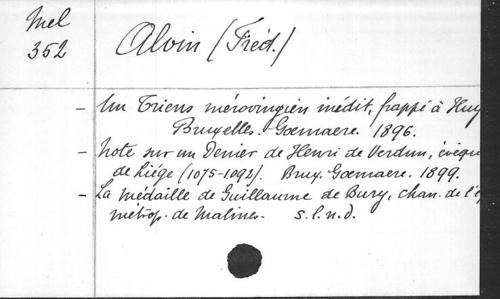 Mel
352
Alvin (Fréd.)
- Un Triens mérovingien inédit, frappé à Huy
Bruxelles. Goemaere. 1896.
- Note sur un Denier de Henri de Verdun, évêque
de Liége (1075-1092). Brux. Goemaere. 1899.
- La médaille de Guillaume de Bury, chan. de l'é
métrop. de Malines. s.l.n.d.